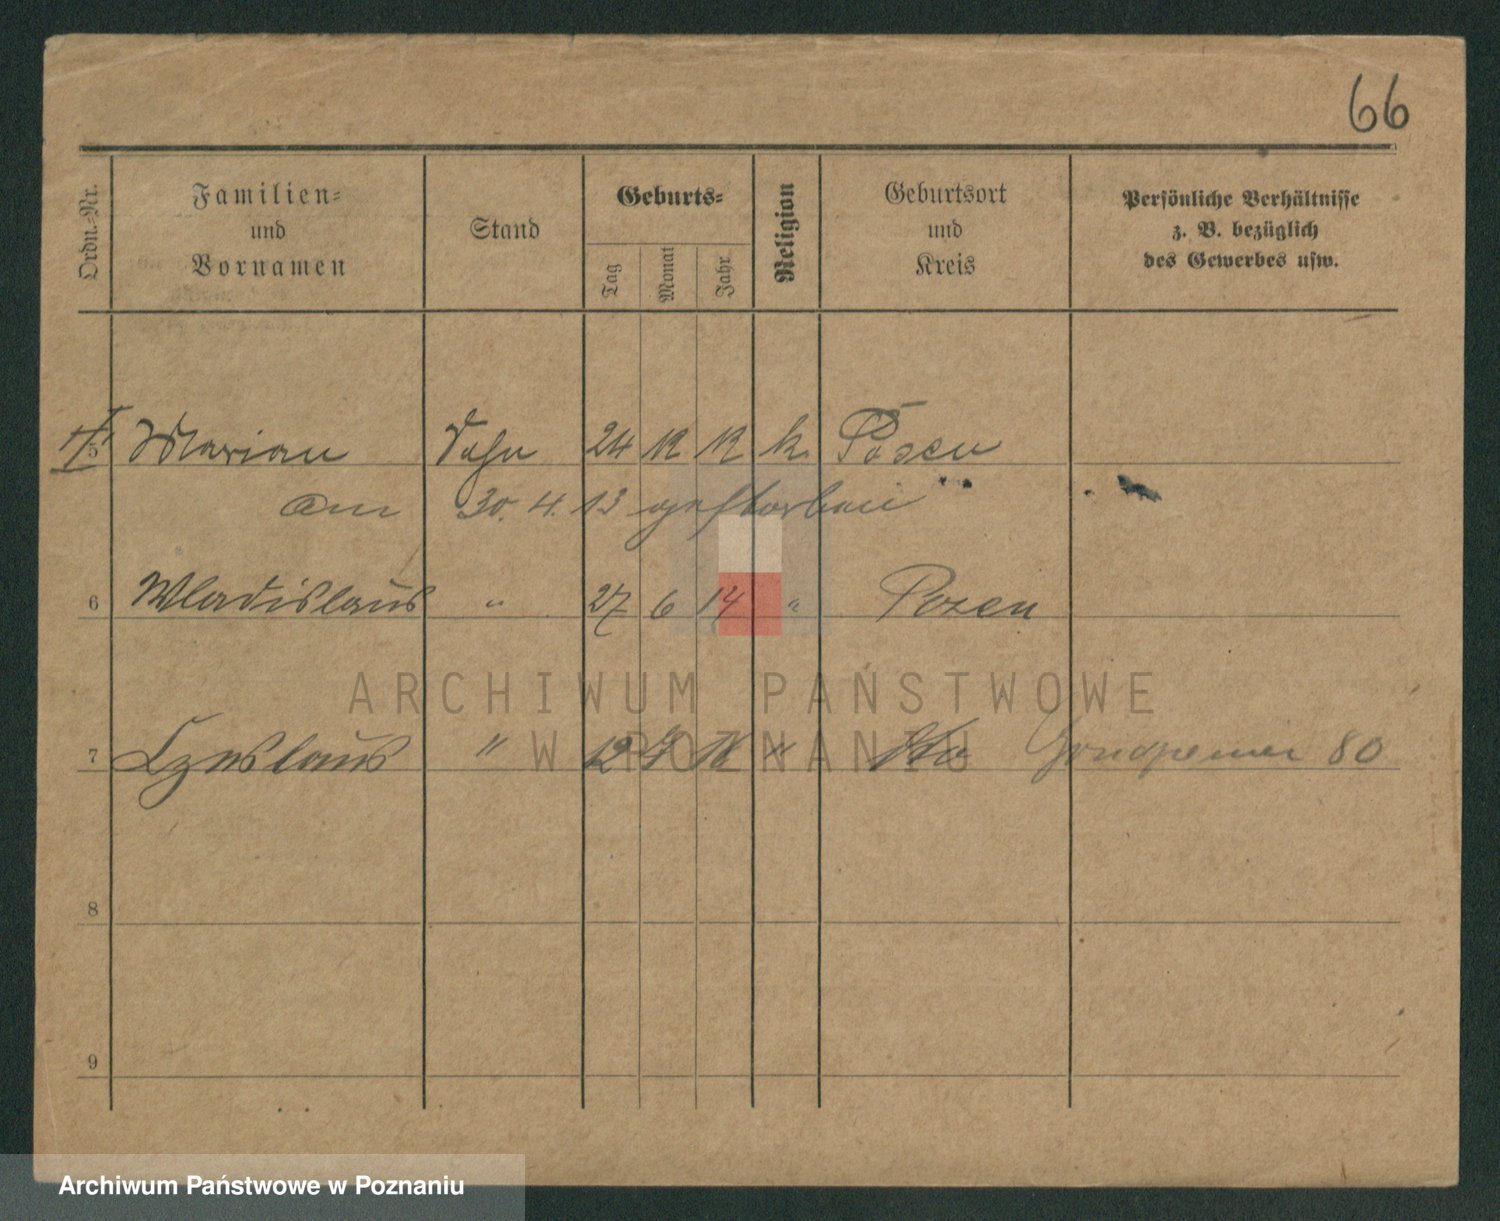 66
Ordn.-Nr.
Familien-
und
Vornamen
Stand
Geburts-
Tag
Monat
Jahr
Religion
Geburtsort
und
Kreis
Persönliche Verhältnisse
z. B. bezüglich
des Gewerbes usw.
5 Marian Sohn 24 12 12 k. Posen
am 30. 4. 13 gestorben
6 Wladislaus " 27 6 14 " Posen
ARCHIWUM PAŃSTWOWE
W POZNANIU
7 Czeslaus " 12 " dto 80
8
9
Archiwum Państwowe w Poznaniu